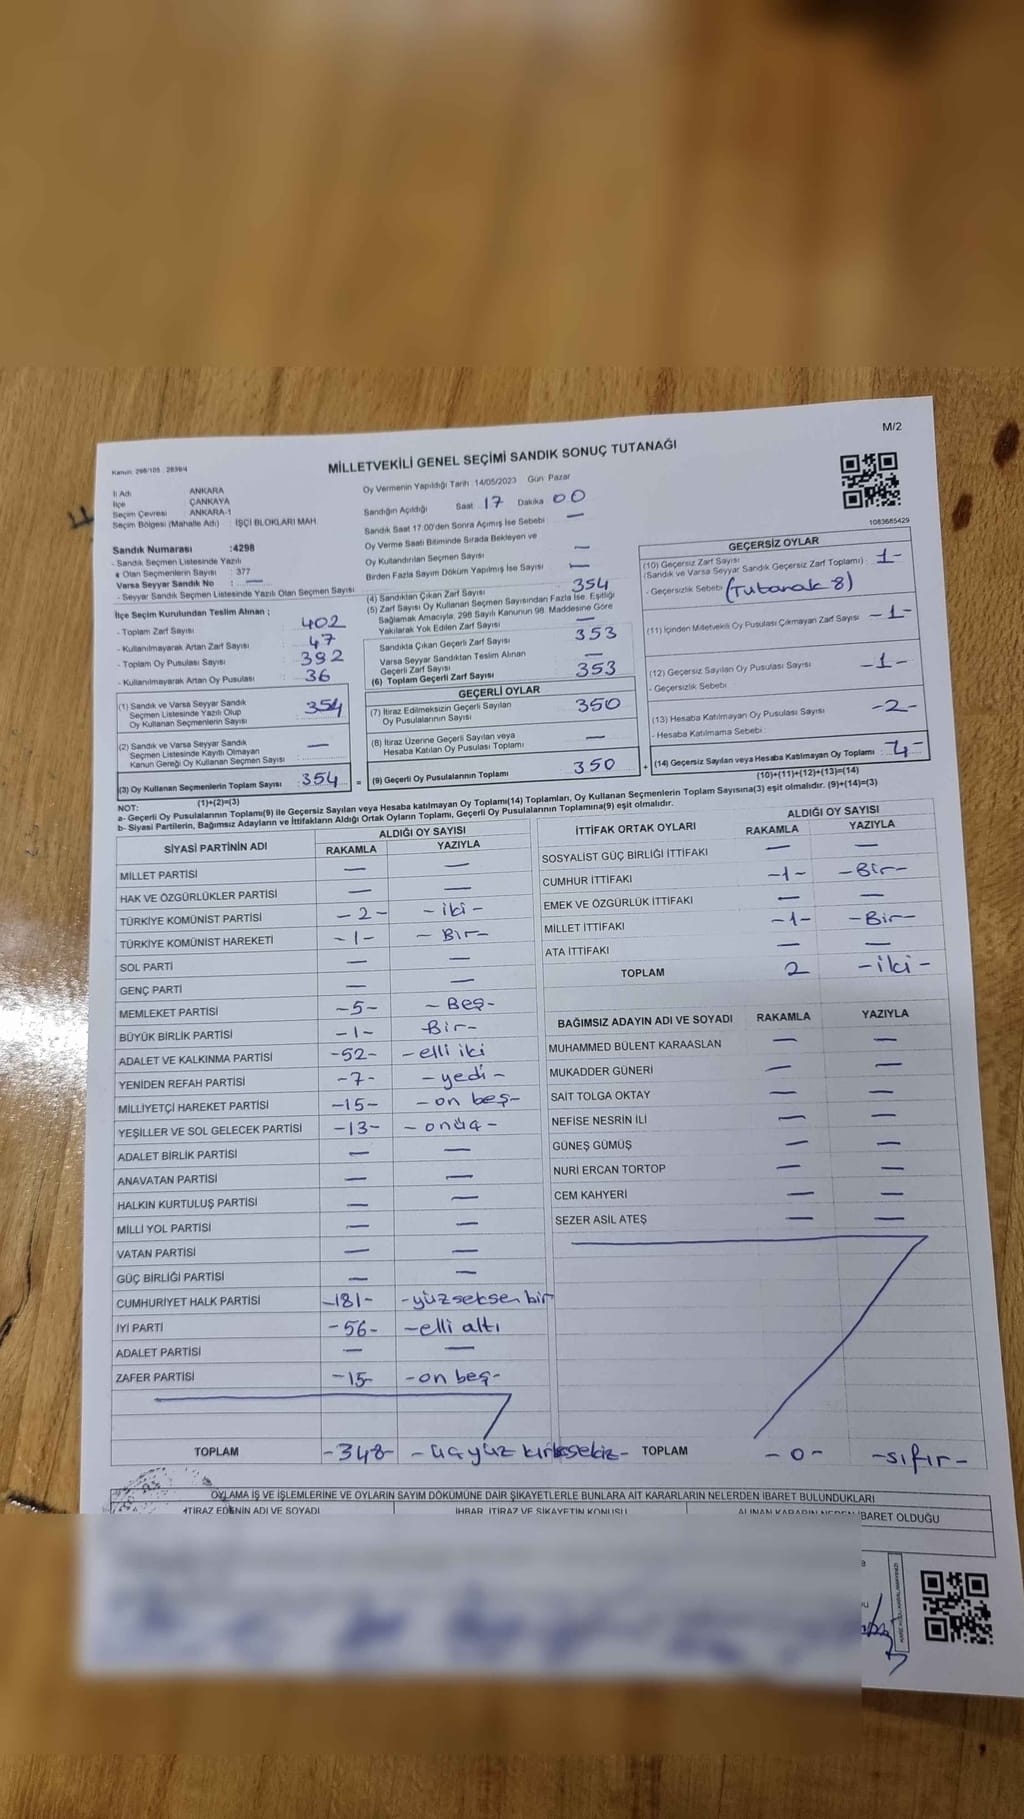 M/2
Kanun: 298/105 ; 2839/4
MİLLETVEKİLİ GENEL SEÇİMİ SANDIK SONUÇ TUTANAĞI
1083665429
İl Adı : ANKARA
İlçe : ÇANKAYA
Seçim Çevresi : ANKARA-1
Seçim Bölgesi (Mahalle Adı) : İŞÇİ BLOKLARI MAH.
Sandık Numarası :4298
- Sandık Seçmen Listesinde Yazılı
Olan Seçmenlerin Sayısı : 377
Varsa Seyyar Sandık No : —
- Seyyar Sandık Seçmen Listesinde Yazılı Olan Seçmen Sayısı
İlçe Seçim Kurulundan Teslim Alınan ;
- Toplam Zarf Sayısı : 402
- Kullanılmayarak Artan Zarf Sayısı : 47
- Toplam Oy Pusulası Sayısı : 392
- Kullanılmayarak Artan Oy Pusulası : 36
(1) Sandık ve Varsa Seyyar Sandık
Seçmen Listesinde Yazılı Olup
Oy Kullanan Seçmenlerin Sayısı : 354
(2) Sandık ve Varsa Seyyar Sandık
Seçmen Listesinde Kayıtlı Olmayan
Kanun Gereği Oy Kullanan Seçmen Sayısı : —
(3) Oy Kullanan Seçmenlerin Toplam Sayısı : 354
(1)+(2)=(3)
Oy Vermenin Yapıldığı Tarih : 14/05/2023 Gün: Pazar
Sandığın Açıldığı Saat 17 Dakika 00
Sandık Saat 17:00'den Sonra Açılmış İse Sebebi : —
Oy Verme Saati Bitiminde Sırada Bekleyen ve
Oy Kullandırılan Seçmen Sayısı —
Birden Fazla Sayım Döküm Yapılmış İse Sayısı —
(4) Sandıktan Çıkan Zarf Sayısı 354
(5) Zarf Sayısı Oy Kullanan Seçmen Sayısından Fazla İse, Eşitliği
Sağlamak Amacıyla, 298 Sayılı Kanunun 98. Maddesine Göre
Yakılarak Yok Edilen Zarf Sayısı —
Sandıkta Çıkan Geçerli Zarf Sayısı 353
Varsa Seyyar Sandıktan Teslim Alınan
Geçerli Zarf Sayısı —
(6) Toplam Geçerli Zarf Sayısı 353
GEÇERLİ OYLAR
(7) İtiraz Edilmeksizin Geçerli Sayılan
Oy Pusulalarının Sayısı 350
(8) İtiraz Üzerine Geçerli Sayılan veya
Hesaba Katılan Oy Pusulası Toplamı —
= (9) Geçerli Oy Pusulalarının Toplamı 350
GEÇERSİZ OYLAR
(10) Geçersiz Zarf Sayısı :
(Sandık ve Varsa Seyyar Sandık Geçersiz Zarf Toplamı) 1-
- Geçersizlik Sebebi : (Tutanak 8)
(11) İçinden Milletvekili Oy Pusulası Çıkmayan Zarf Sayısı -1-
(12) Geçersiz Sayılan Oy Pusulası Sayısı -1-
- Geçersizlik Sebebi :
(13) Hesaba Katılmayan Oy Pusulası Sayısı -2-
- Hesaba Katılmama Sebebi :
+ (14) Geçersiz Sayılan veya Hesaba Katılmayan Oy Toplamı : 4-
(10)+(11)+(12)+(13)=(14)
NOT:
a- Geçerli Oy Pusulalarının Toplamı(9) ile Geçersiz Sayılan veya Hesaba katılmayan Oy Toplamı(14) Toplamları, Oy Kullanan Seçmenlerin Toplam Sayısına(3) eşit olmalıdır. (9)+(14)=(3)
b- Siyasi Partilerin, Bağımsız Adayların ve İttifakların Aldığı Ortak Oyların Toplamı, Geçerli Oy Pusulalarının Toplamına(9) eşit olmalıdır.
SİYASİ PARTİNİN ADI ALDIĞI OY SAYISI
RAKAMLA YAZIYLA
MİLLET PARTİSİ — —
HAK VE ÖZGÜRLÜKLER PARTİSİ — —
TÜRKİYE KOMÜNİST PARTİSİ -2- -iki-
TÜRKİYE KOMÜNİST HAREKETİ -1- -Bir-
SOL PARTİ — —
GENÇ PARTİ — —
MEMLEKET PARTİSİ -5- -Beş-
BÜYÜK BİRLİK PARTİSİ -1- -Bir-
ADALET VE KALKINMA PARTİSİ -52- -elli iki
YENİDEN REFAH PARTİSİ -7- -yedi-
MİLLİYETÇİ HAREKET PARTİSİ -15- -on beş-
YEŞİLLER VE SOL GELECEK PARTİSİ -13- -onüç-
ADALET BİRLİK PARTİSİ — —
ANAVATAN PARTİSİ — —
HALKIN KURTULUŞ PARTİSİ — —
MİLLİ YOL PARTİSİ — —
VATAN PARTİSİ — —
GÜÇ BİRLİĞİ PARTİSİ — —
CUMHURİYET HALK PARTİSİ -181- -yüzseksen bir
İYİ PARTİ -56- -elli altı
ADALET PARTİSİ — —
ZAFER PARTİSİ -15- -on beş-
TOPLAM -348- -üçyüz kırksekiz-
İTTİFAK ORTAK OYLARI ALDIĞI OY SAYISI
RAKAMLA YAZIYLA
SOSYALİST GÜÇ BİRLİĞİ İTTİFAKI — —
CUMHUR İTTİFAKI -1- -Bir-
EMEK VE ÖZGÜRLÜK İTTİFAKI — —
MİLLET İTTİFAKI -1- -Bir-
ATA İTTİFAKI — —
TOPLAM 2 -iki-
BAĞIMSIZ ADAYIN ADI VE SOYADI RAKAMLA YAZIYLA
MUHAMMED BÜLENT KARAASLAN — —
MUKADDER GÜNERİ — —
SAİT TOLGA OKTAY — —
NEFİSE NESRİN İLİ — —
GÜNEŞ GÜMÜŞ — —
NURİ ERCAN TORTOP — —
CEM KAHYERİ — —
SEZER ASİL ATEŞ — —
TOPLAM -0- -sıfır-
OYLAMA İŞ VE İŞLEMLERİNE VE OYLARIN SAYIM DÖKÜMÜNE DAİR ŞİKAYETLERLE BUNLARA AİT KARARLARIN NELERDEN İBARET BULUNDUKLARI
İTİRAZ EDENİN ADI VE SOYADI İHBAR, İTİRAZ VE ŞİKAYETİN KONUSU ALINAN KARARIN NEDEN İBARET OLDUĞU